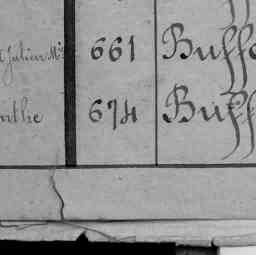 Julien M. 661 Buffo
nthe 674 Buff